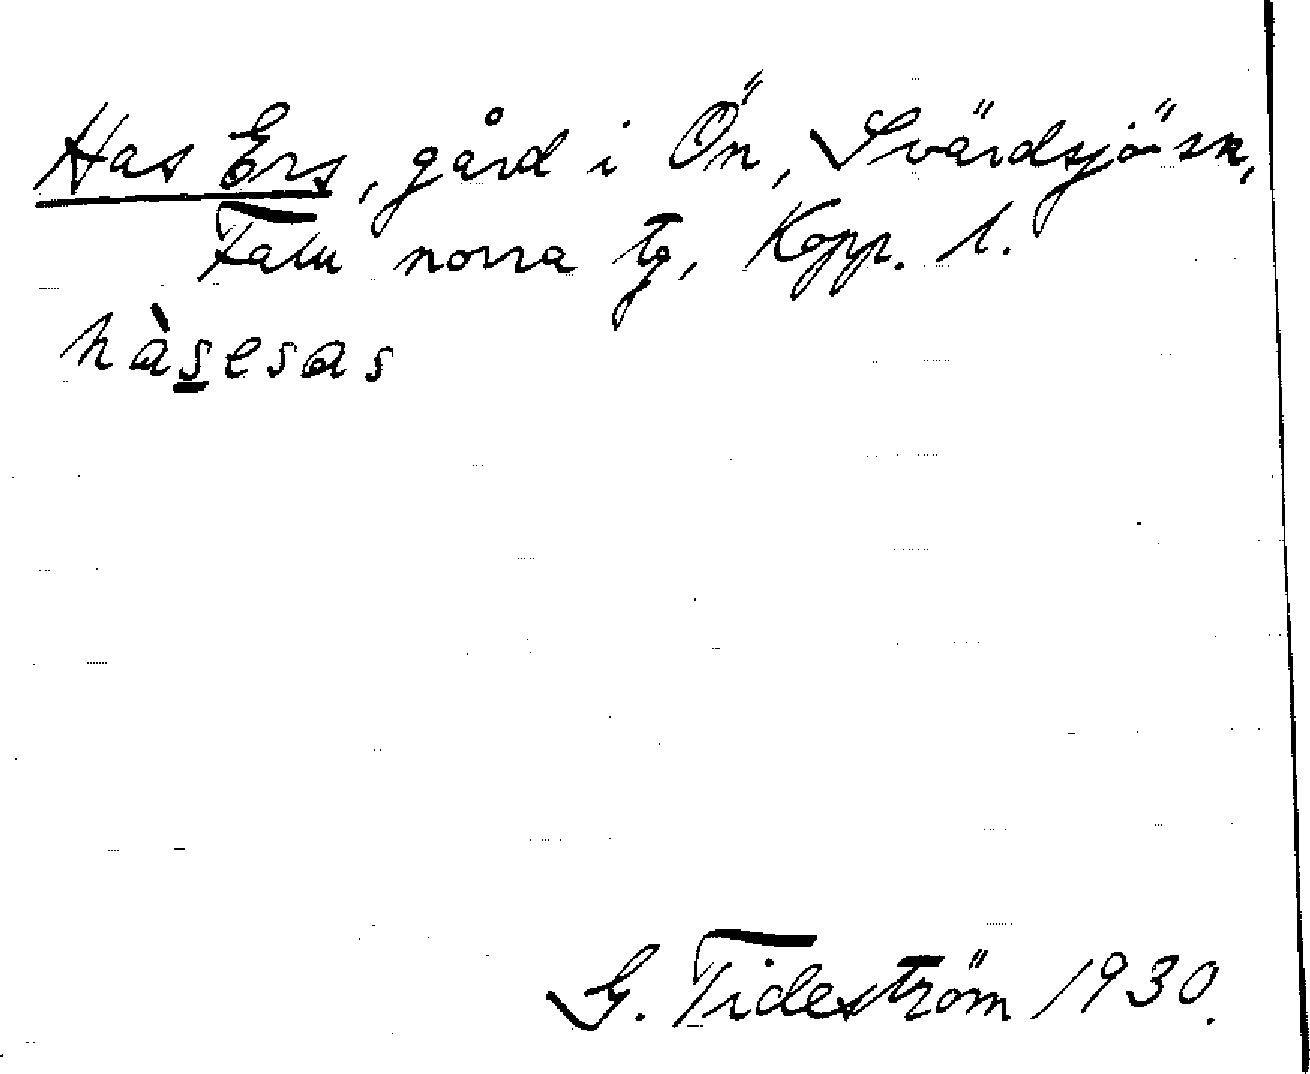 Has Ers, gård i Ön, Svärdsjö sn,
Falu norra tg, Kopp. l.
hàsesas
G. Tideström 1930.